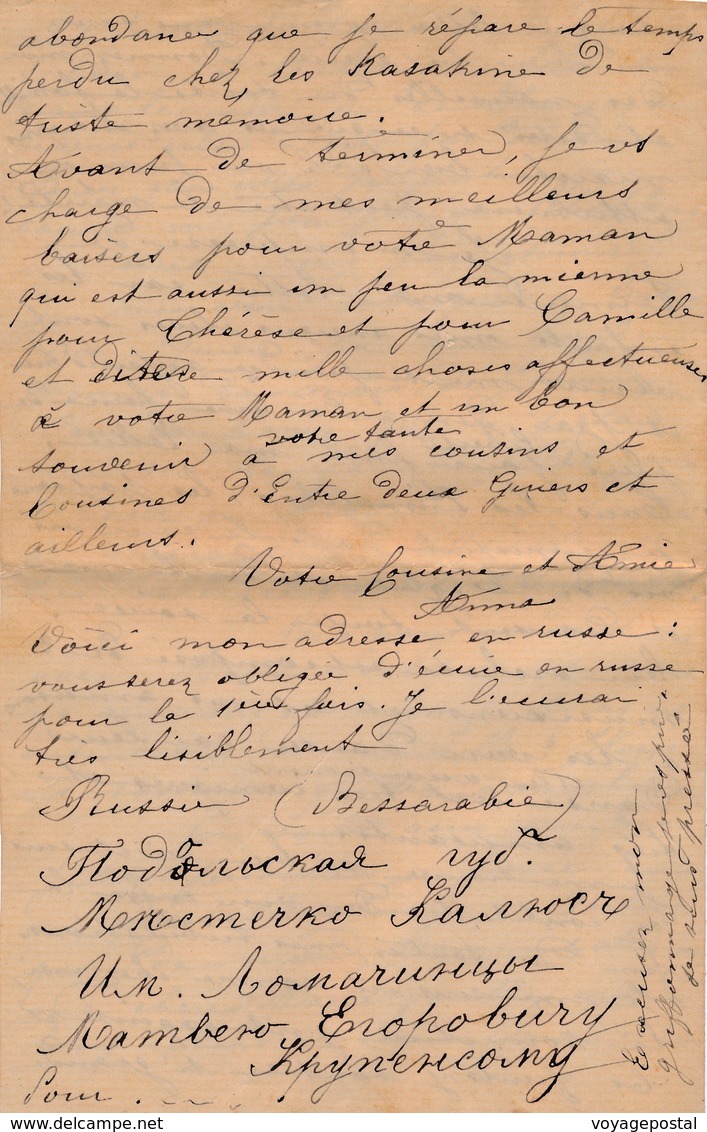 abondance que je répare le temps
perdu chez les Kasakine de
triste mémoire.
Avant de terminer, je vs
charge de mes meilleurs
baisers pour votre Maman
qui est aussi un peu la mienne
pour Thérèse et pour Camille
et dites mille choses affectueuses
à votre Maman et un bon
votre tante
souvenir à mes cousins et
Cousines d'Entre deux Guiers et
ailleurs.
Votre Cousine et Amie
Anna
Voici mon adresse en russe :
vous serez obligée d'écrire en russe
pour la 1ère fois. Je l'écrirai
très lisiblement
Russie (Bessarabie)
Подольская губ.
Мѣстечко Калюсъ
Им. Ломачинцы
Матвею Егоровичу
Крупенсому
Pour . . . .
Excusez mon
griffonnage
je suis pressée
voyagepostal